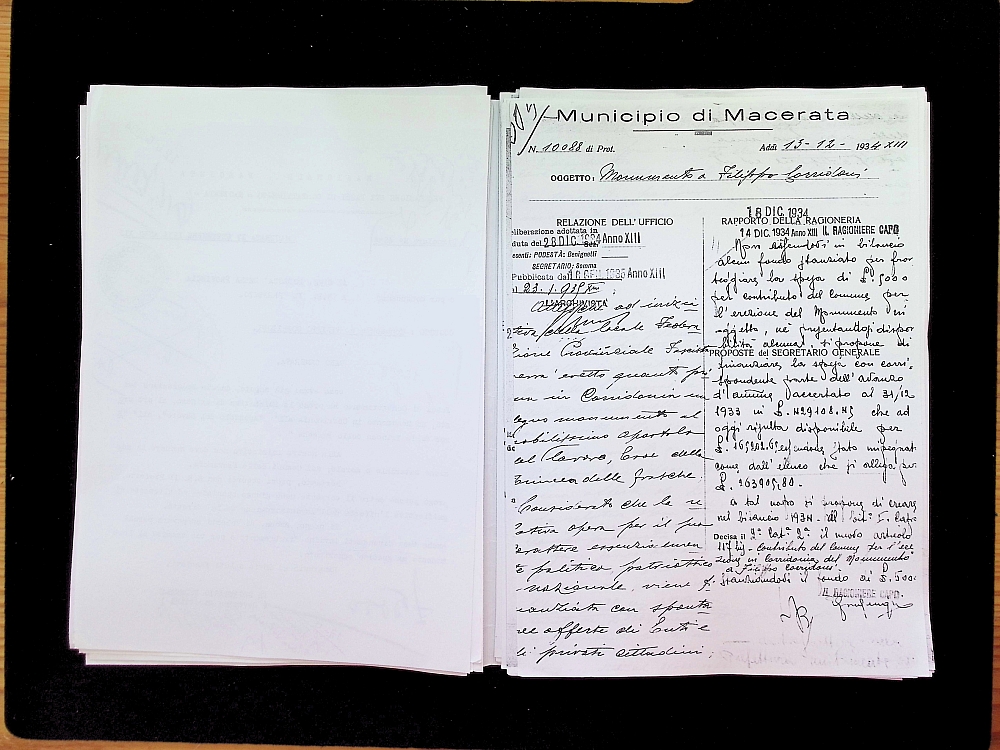 Municipio di Macerata
N. 10088 di Prot. Addì 13-12- 1934 XIII
OGGETTO: Monumento a Filippo Corridoni
RELAZIONE DELL'UFFICIO
eliberazione adottata in
duta del 28 DIC. 1934 Anno XIII
esenti: PODESTÀ: Benignetti
SEGRETARIO: Somma
Pubblicata dal Anno XIII
l 23.1.935
L'ARCHIVISTA
ad inizia
tiva della locale Federa
zione Provinciale Fascista
verrà eretto quanto pri
ma in Corridonia un
degno monumento al
nobilissimo apostolo
del lavoro, Eroe della
Trincea delle frasche.
Considerato che la re
lativa opera per il suo
carattere essenzialmen
te politico, patriottico
nazionale, viene f
inanziata con sponta
nee offerte di Enti e
di privati cittadini;
18 DIC. 1934
RAPPORTO DELLA RAGIONERIA
14 DIC. 1934 Anno XIII IL RAGIONIERE CAPO
Non essendovi in bilancio
alcun fondo stanziato per fron
teggiare la spesa di £. 5000
per contributo del Comune per
l'erezione del Monumento in
oggetto, nè presentandosi dispo
bilità alcuna, si propone di
PROPOSTE del SEGRETARIO GENERALE
finanziare la spesa con corri-
spondente parte dell'avanzo
d'amm.ne accertato al 31/12
1933 in £. che ad
oggi risulta disponibile per
£. essendone stato impegnat
come dall'elenco che si allega per
£.
a tal uopo si propone di creare
nel bilancio 1934 - al
Decisa il 2ª Cat.ª 2ª il nuovo articolo
117 - Contributo del Comune per l'ere
zione in Corridonia del Monumento
a Filippo Corridoni.
stanziandovi il fondo di £.
IL RAGIONIERE CAPO